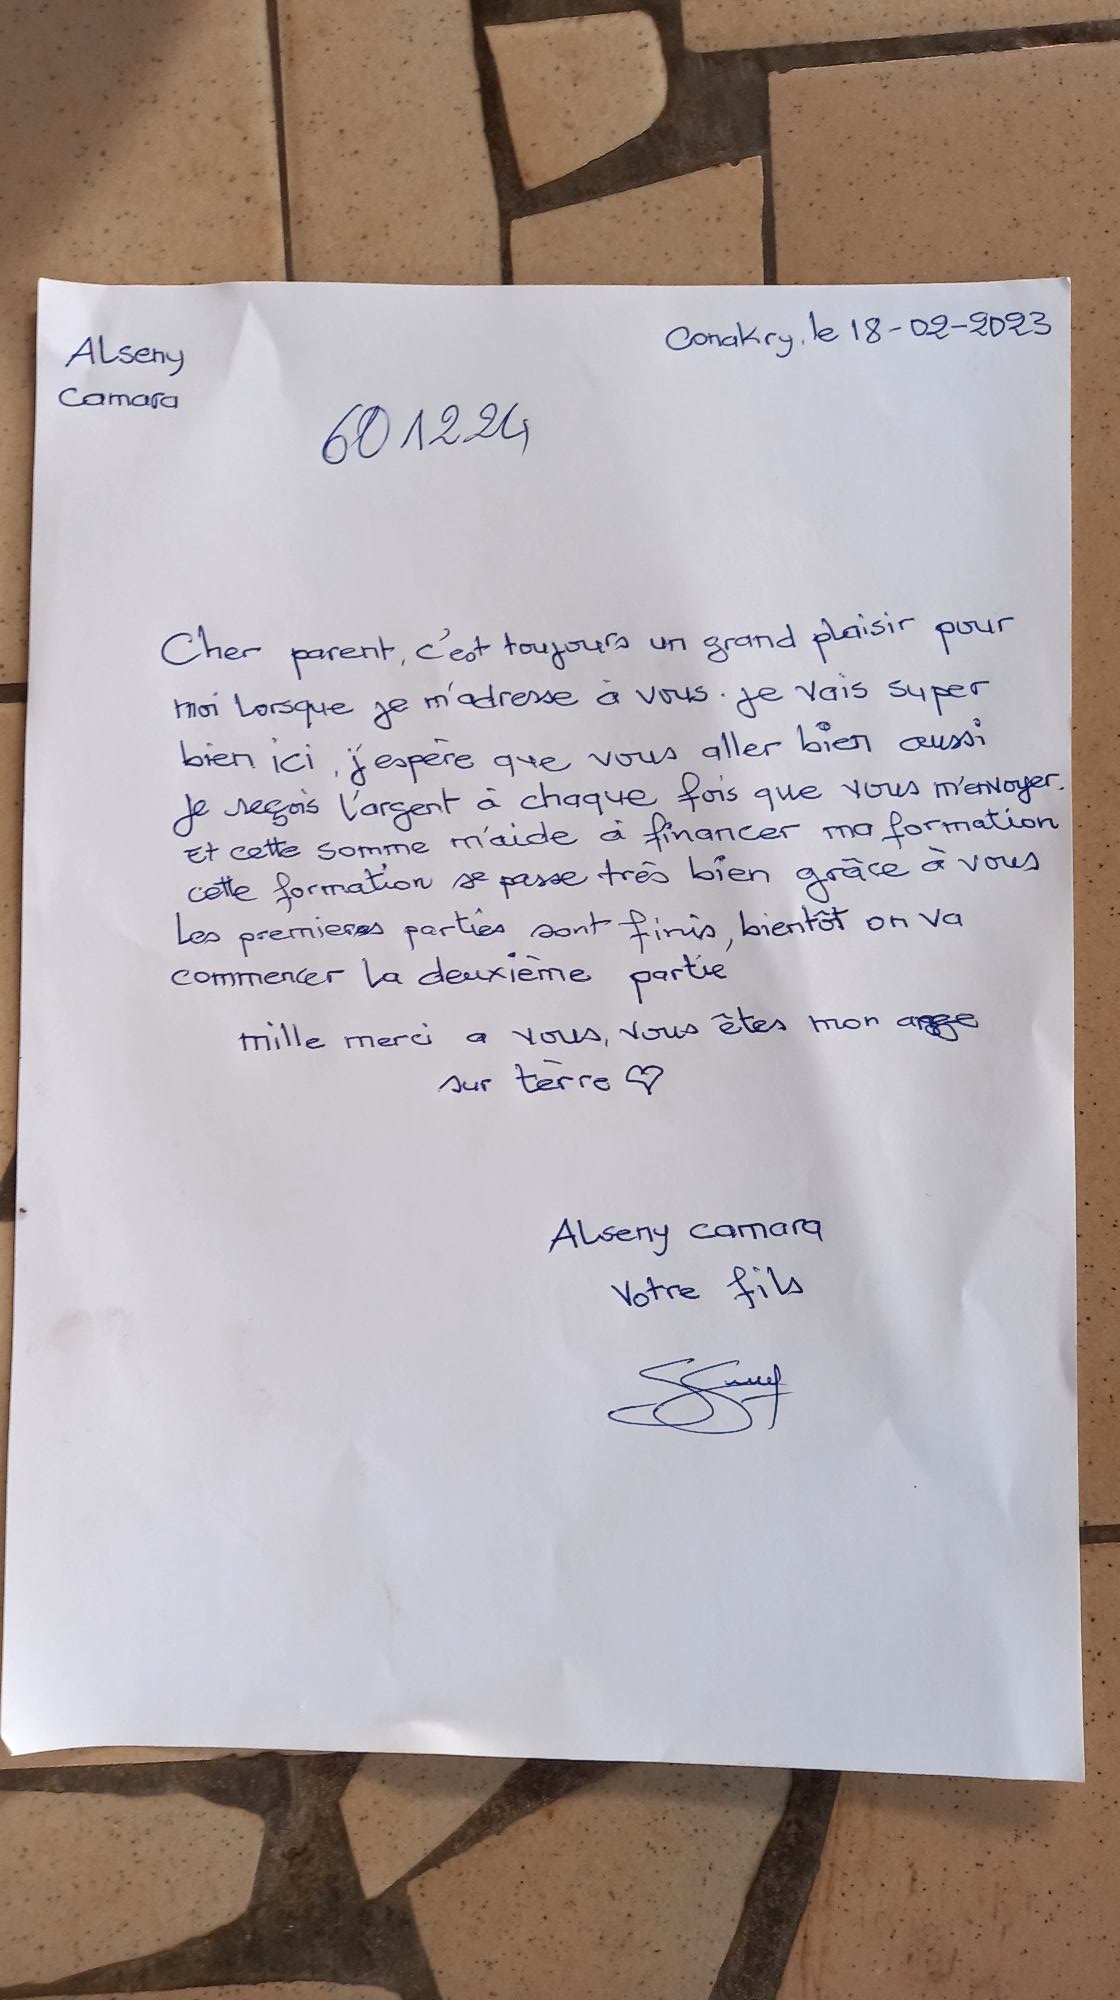 Alseny
Camara
Conakry, le 18-02-2023
601224
Cher parent, c'est toujours un grand plaisir pour
moi lorsque je m'adresse à vous. je vais super
bien ici, j'espère que vous aller bien aussi
Je reçois l'argent à chaque fois que vous m'envoyer.
Et cette somme m'aide à financer ma formation
cette formation se passe très bien grâce à vous
Les premieres parties sont finis, bientôt on va
commencer la deuxième partie
mille merci a vous, vous êtes mon ange
sur tèrre ♡
Alseny camara
Votre fils